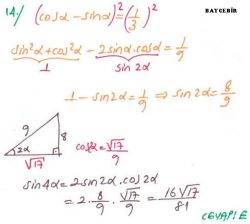 BAYCEBİR
14./ (cosα - sinα)² = (1/3)²
sin²α + cos²α - 2sinα.cosα = 1/9
1 sin 2α
1 - sin2α = 1/9 ⇒ sin2α = 8/9
9 8
2α
√17
cos2α = √17/9
sin4α = 2sin2α.cos2α
= 2. 8/9 . √17/9 = 16√17/81
CEVAP: E